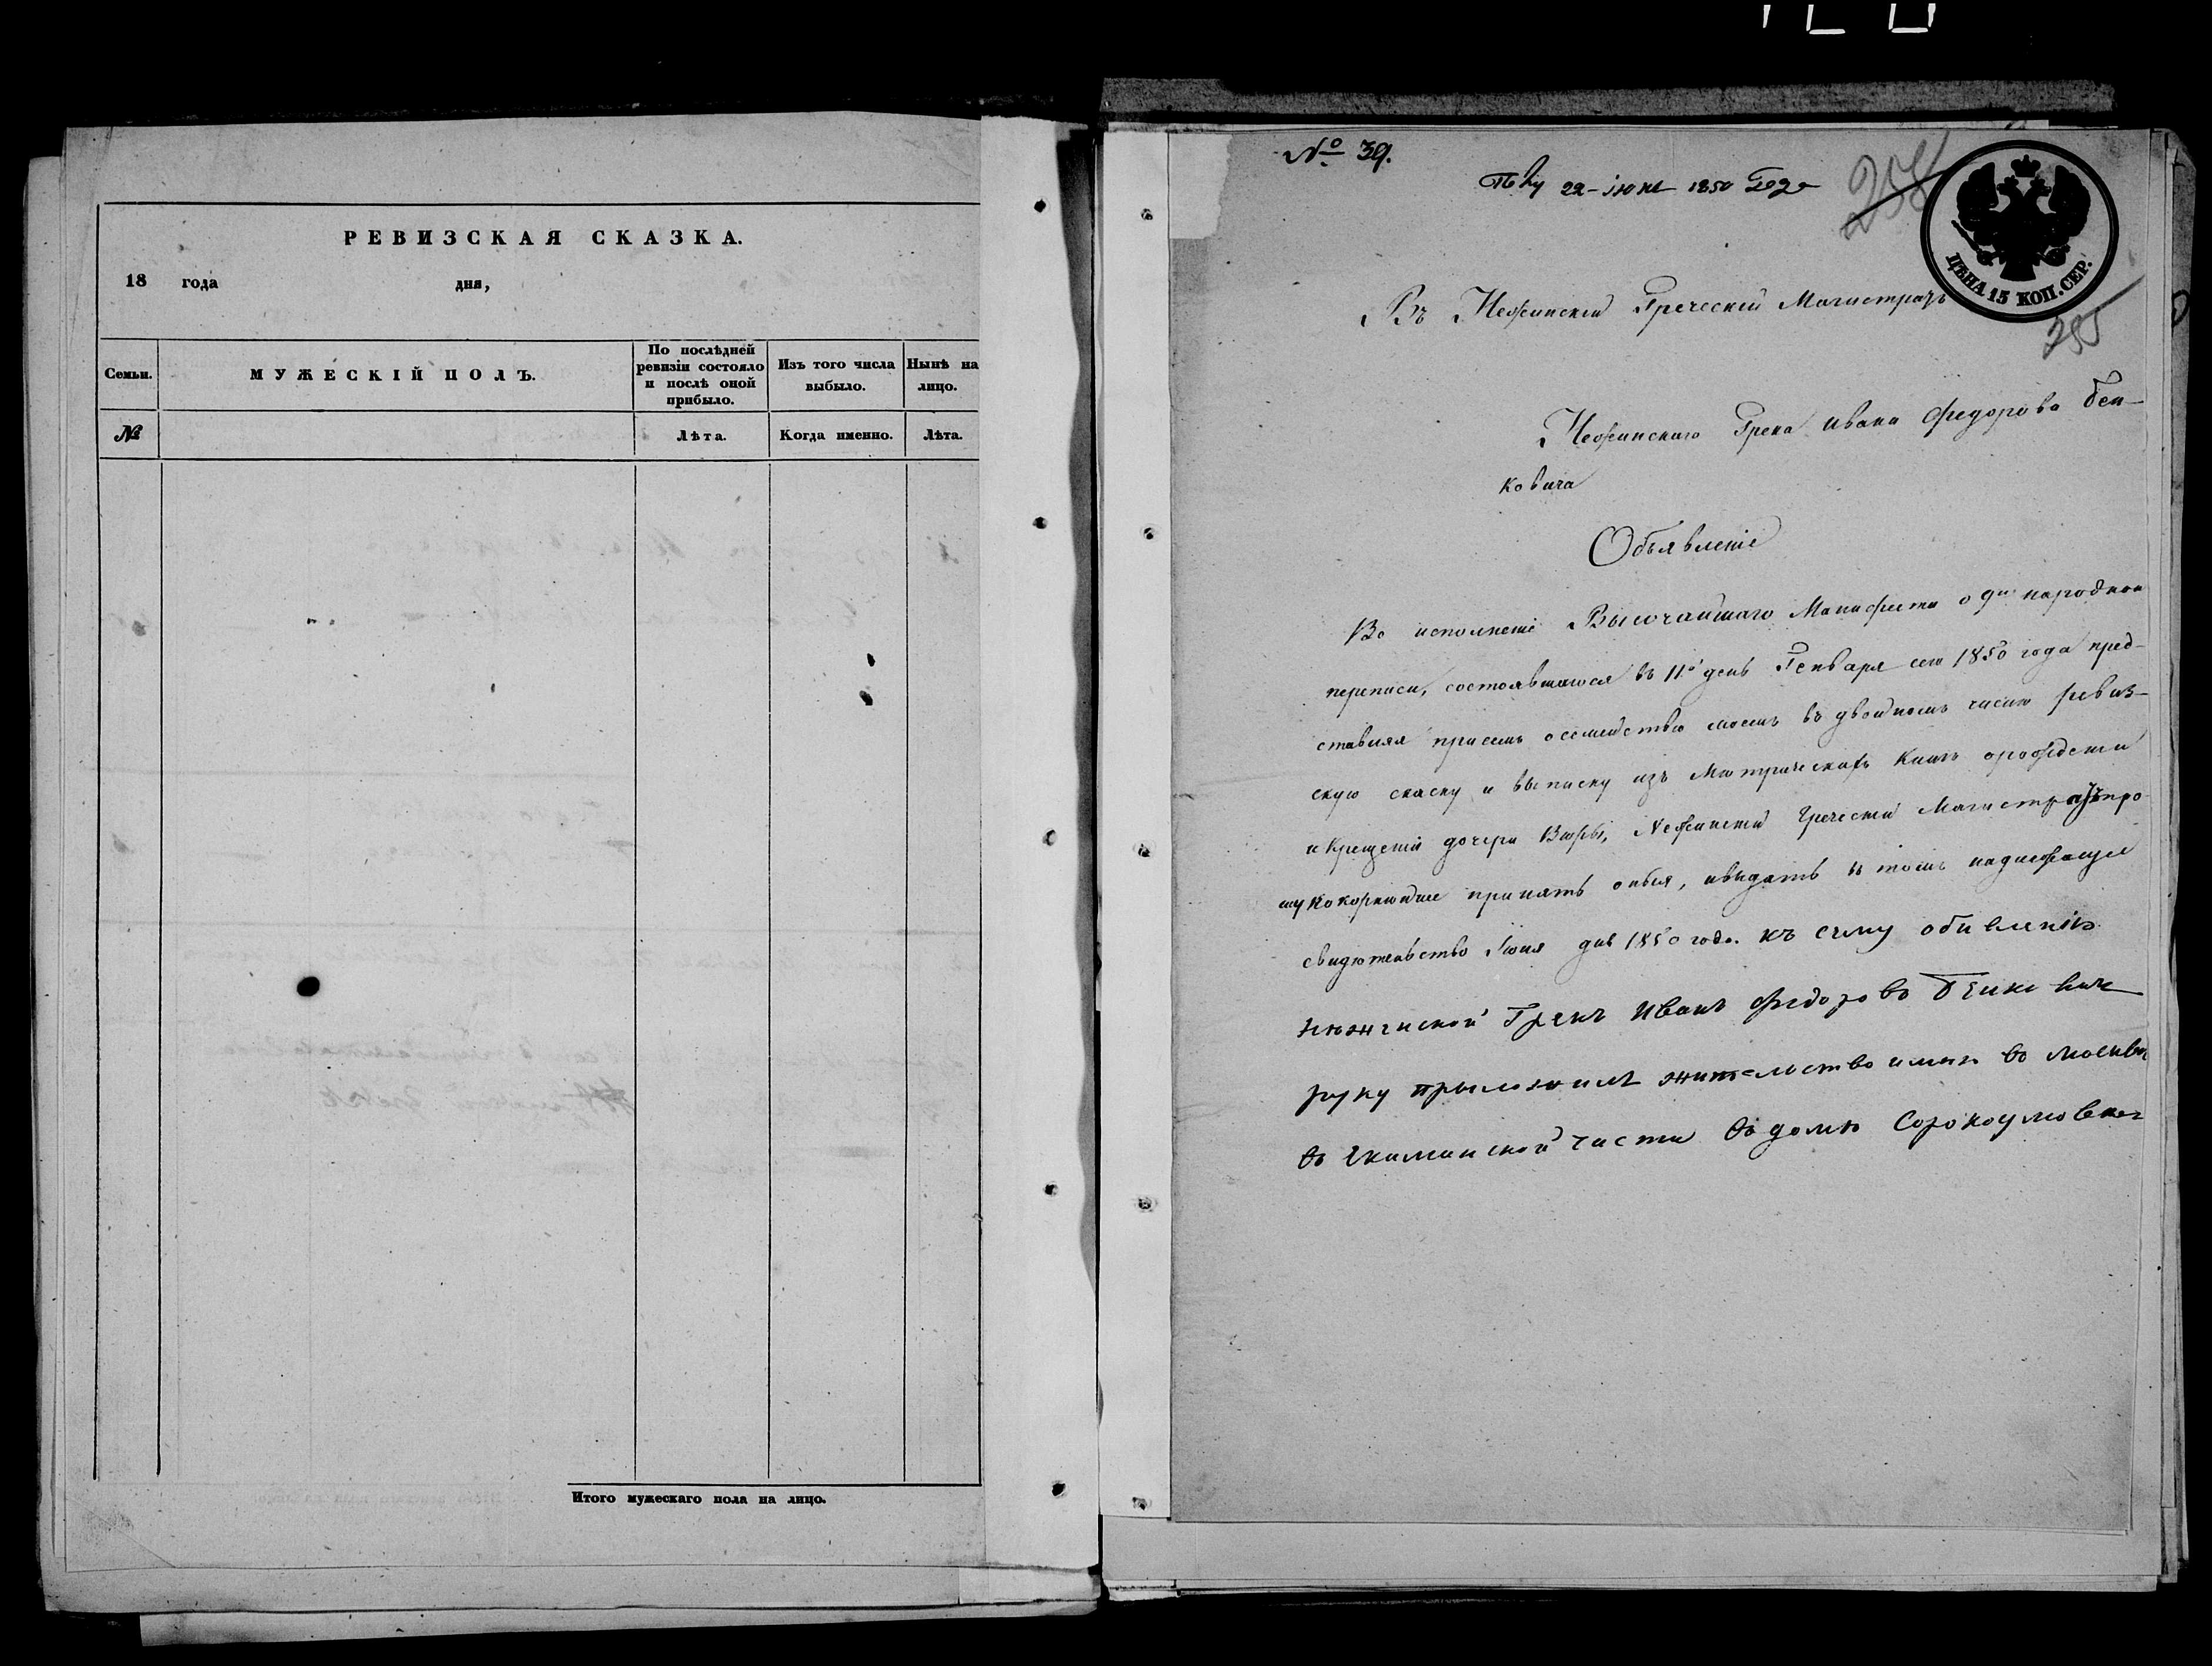 РЕВИЗСКАЯ СКАЗКА.
18 года дня,
Семьи.
МУЖЕСКІЙ ПОЛЪ.
По послѣдней ревизіи состояло и послѣ оной прибыло.
Изъ того числа выбыло.
Нынѣ на лицо.
№
Лѣта.
Когда именно.
Лѣта.
Итого мужескаго пола на лицо.
№ 39.
22 июня 1850 Года
258
ЦѢНА 15 КОП. СЕР.
Въ Нежинский Греческий Магистратъ
Нежинскаго Грека Ивана Федорова Бен-
ковича
Объявленіе
Во исполненіе Высочайшаго Манифеста о 9й народной
переписи, состоявшагося въ 11й день Генваря сего 1850 года пред-
ставляя при семъ о семействе моемъ въ двойномъ числе ревиз-
скую скаску и выписку изъ Метрическихъ Книгъ о рождении
и Крещеніи дочери Веры, Нежинский Греческий Магистратъ про-
шу покорнейше принять оныя, и выдать в томъ надлежащее
свидетельство Июня дня 1850 года. къ сему обивленію
нежинской Грекъ Иванъ Федоровъ Бенкович
руку приложилъ жительство имею въ москве
въ Якиманской части въ доме Сорокоумовска